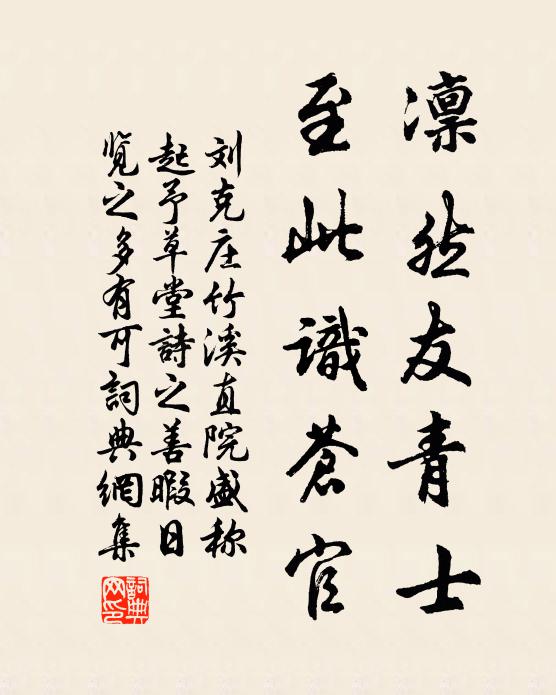 凛然友青士
至此識蒼官
刘克庄竹溪直院盛称
起予草堂詩之善暇日
览之多有可詞典網集
詞典
网印